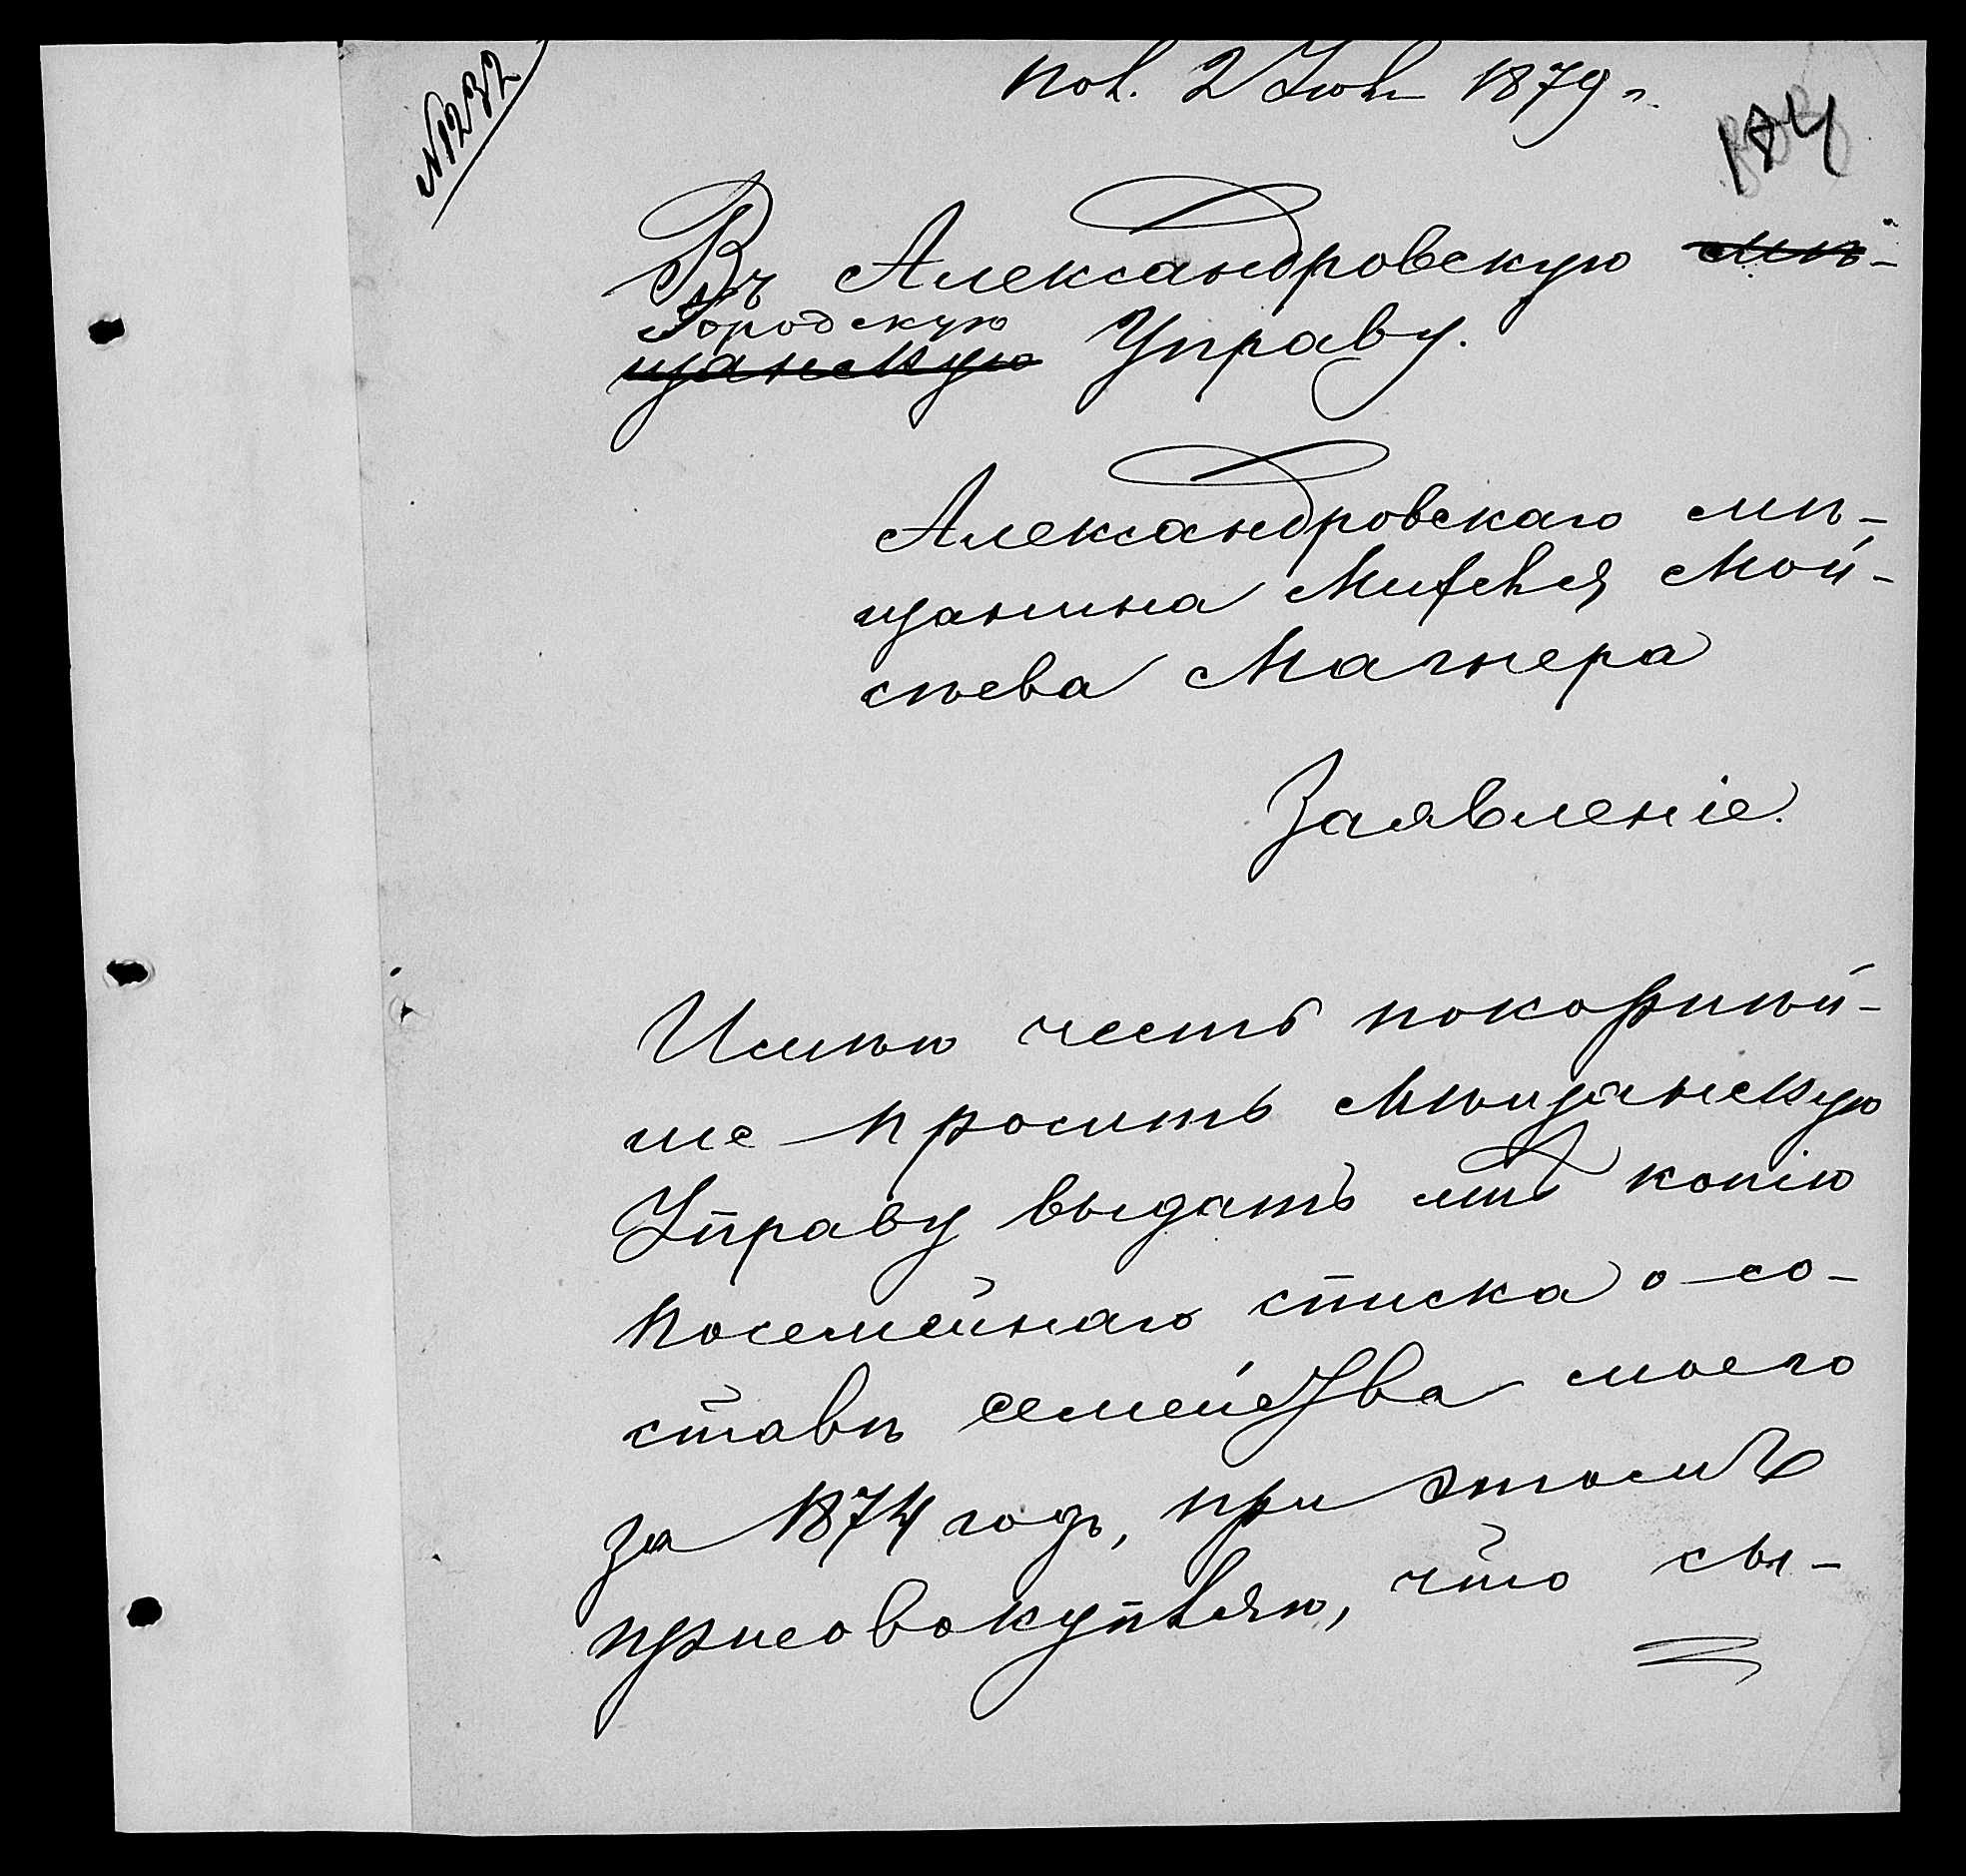 №1232
пол. 2 Іюл 1879 г.
184
Въ Александровскую мѣ-
Городскую
щанскую Управу.
Александровскаго мѣ-
щанина Мителя Мой-
сѣева Магнера
Заявленіе.
Имѣю честь покорнѣй-
ше просить Мѣщанскую
Управу выдать мнѣ копію
посемейнаго списка о со-
ставѣ семейства моего
за 1874 годъ, при этомъ
присовокупляю, что сы-